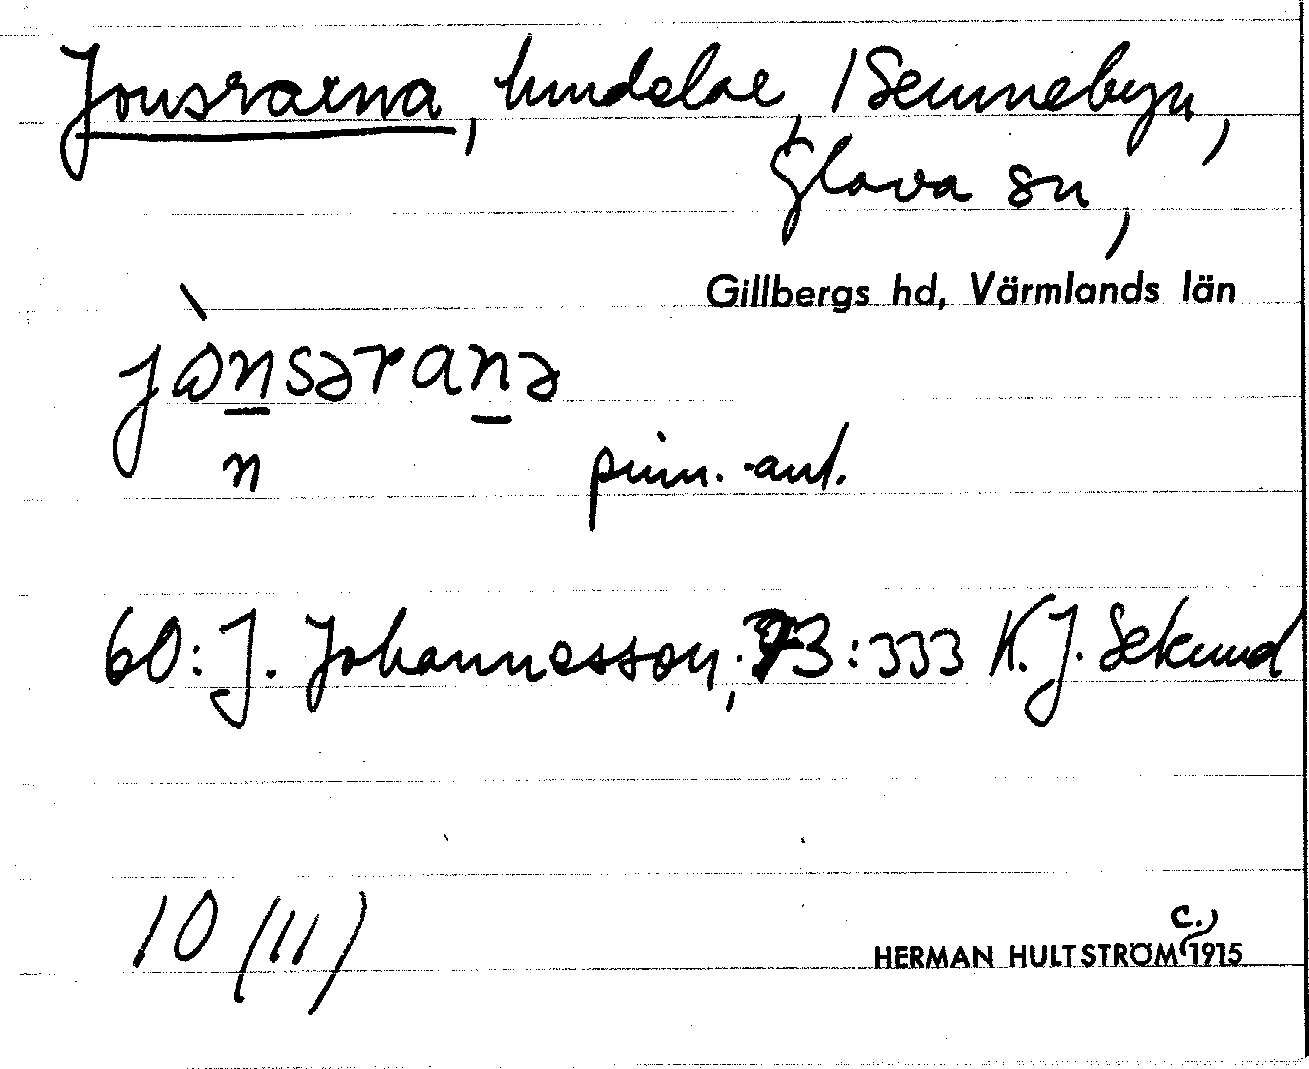 Jonsrarna, hundelar, 1 Sem Sennebyn,
Glava sn,
Gillbergs hd, Värmlands län
jɷ̀nsəranə
n prim.-ant.
60: J. Johannesson, 73:333 K. J. Sekund
10 (11)
HERMAN HULTSTRÖM c. 1915